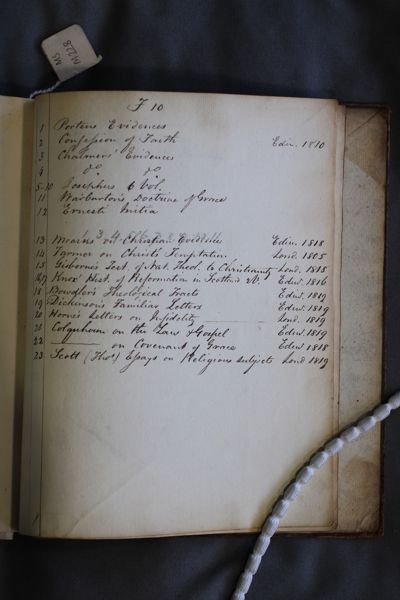 MS
M228
F 10
1 Porteus Evidences
2 Confession of Faith Edin. 1810
3 Chalmers' Evidences
4 do do
5-10 Josephus 6 Vol.
11 Warburton's Doctrine of Grace
12 Ernesti Initia
13 Mearns on Christian Evidence Edin 1818
14 Farmer on Christs Temptation Lond. 1805
15 Gisborne's Test. of Nat. Theol. to Christianity Lond. 1818
Knox' Hist. of Reformation in Scotland Edin 1816
18 Bowdler's Theological Tracts Edin. 1819
19 Dickinson's Familiar Letters Edin 1819
20 Horne's Letters on Infidelity Lond. 1819
Colquhoun on the Law & Gospel Edin 1819
22 ——— on Covenant of Grace Edin 1818
23 Scott (Thos) Essays on Religious subjects Lond 1819